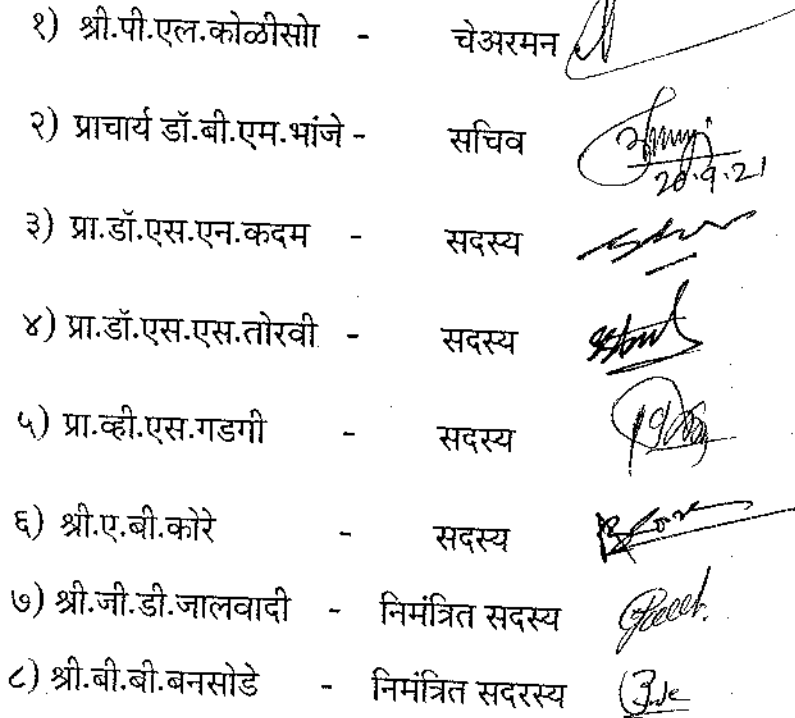 १) श्री.पी.एल.कोळीसो - चेअरमन
२) प्राचार्य डॉ.बी.एम.भांजे - सचिव
20.9.21
३) प्रा.डॉ.एस.एन.कदम - सदस्य
४) प्रा.डॉ.एस.एस.तोरवी - सदस्य
५) प्रा.व्ही.एस.गडगी - सदस्य
६) श्री.ए.बी.कोरे - सदस्य
७) श्री.जी.डी.जालवादी - निमंत्रित सदस्य
८) श्री.बी.बी.बनसोडे - निमंत्रित सदरस्य